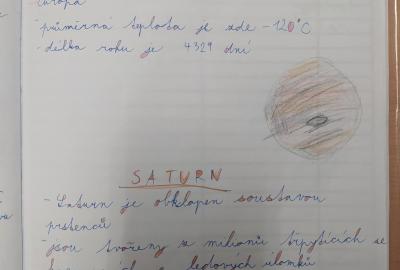 Evropa
- průměrná teplota je zde -120°C
- délka roku je 4329 dní
SATURN
- Saturn je obklopen soustavou
prstenců
- jsou tvořeny z milionů třpytících se
ledových úlomků